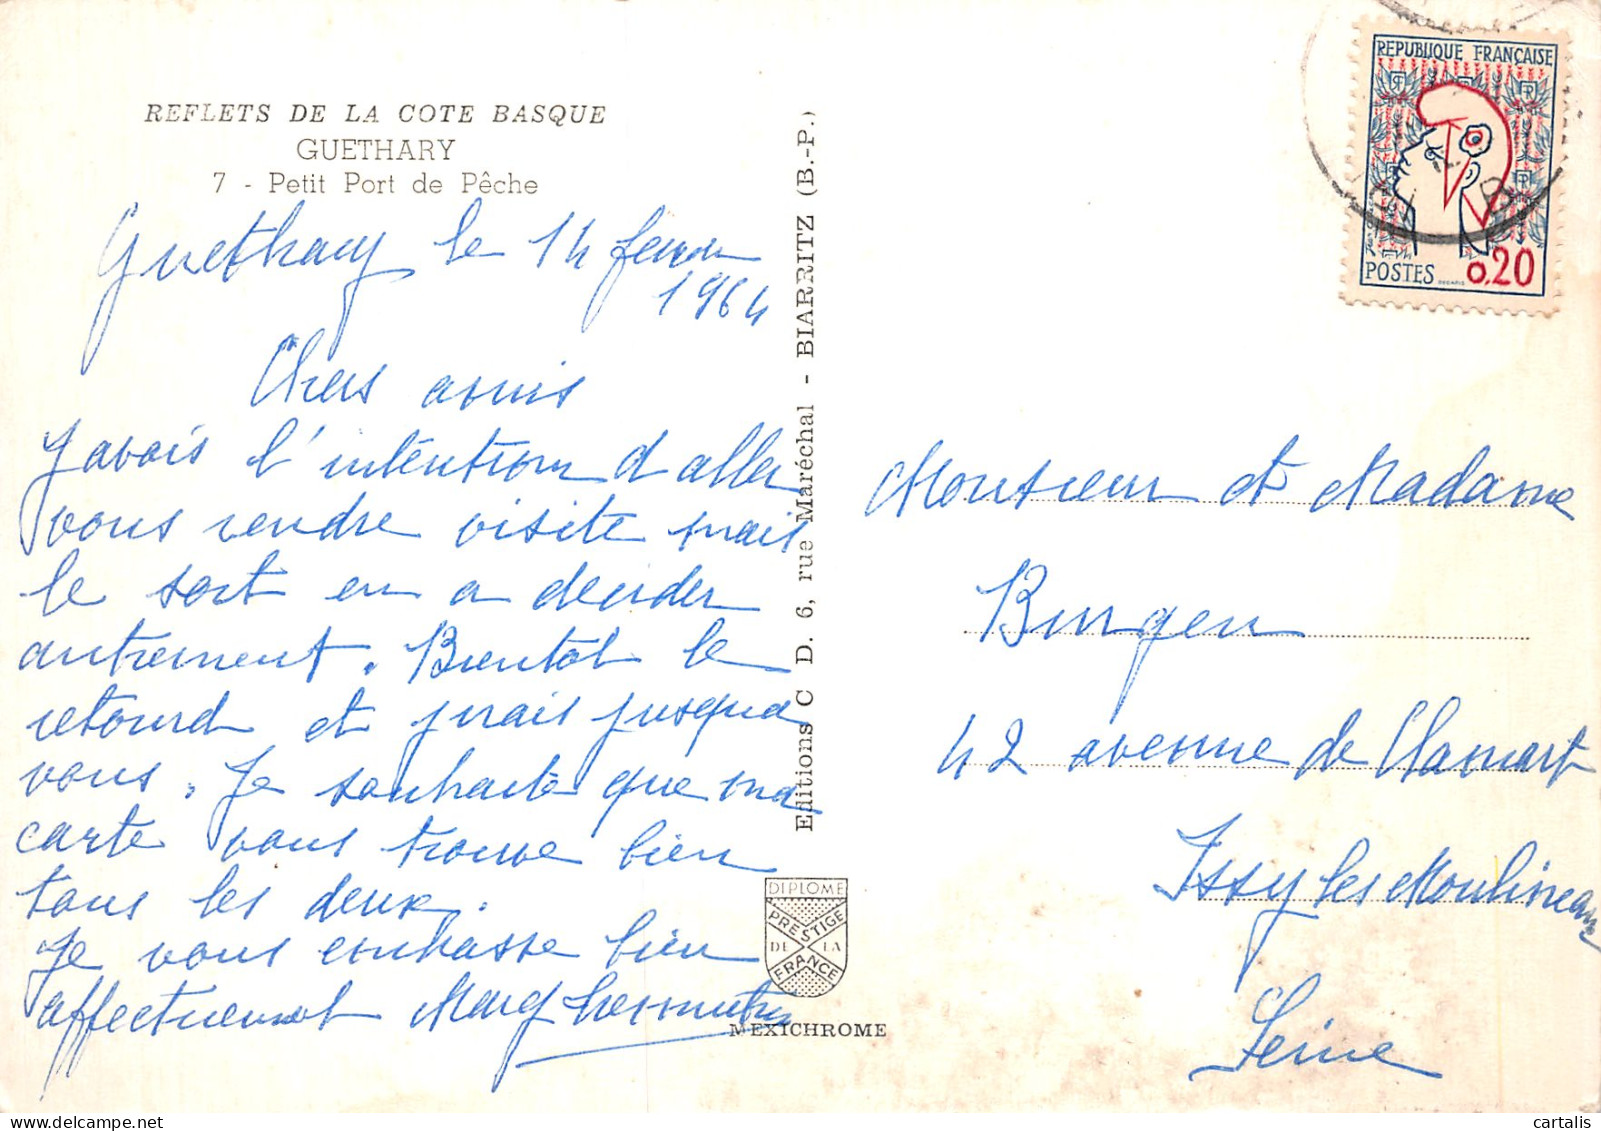 REFLETS DE LA COTE BASQUE
GUETHARY
7 - Petit Port de Pêche
Guethary le 14 fevrier
1964
Chers amis
J avais l'intention d aller
vous rendre visite mais
le sort en a decider
autrement. Bientot le
retourd et jirais jusqua
vous. Je souhaite que ma
carte vous trouve bien
tous les deux.
Je vous embrasse bien
affectuement Marg
Editions C D. 6, rue Maréchal - BIARRITZ (B.-P.)
DIPLOME
PRESTIGE
DE LA
FRANCE
MEXICHROME
REPUBLIQUE FRANÇAISE
POSTES 0,20
Monsieur et Madame
Burgen
42 avenue de Clamart
Issy les Moulineau
Seine
cartalis - delcampe.net